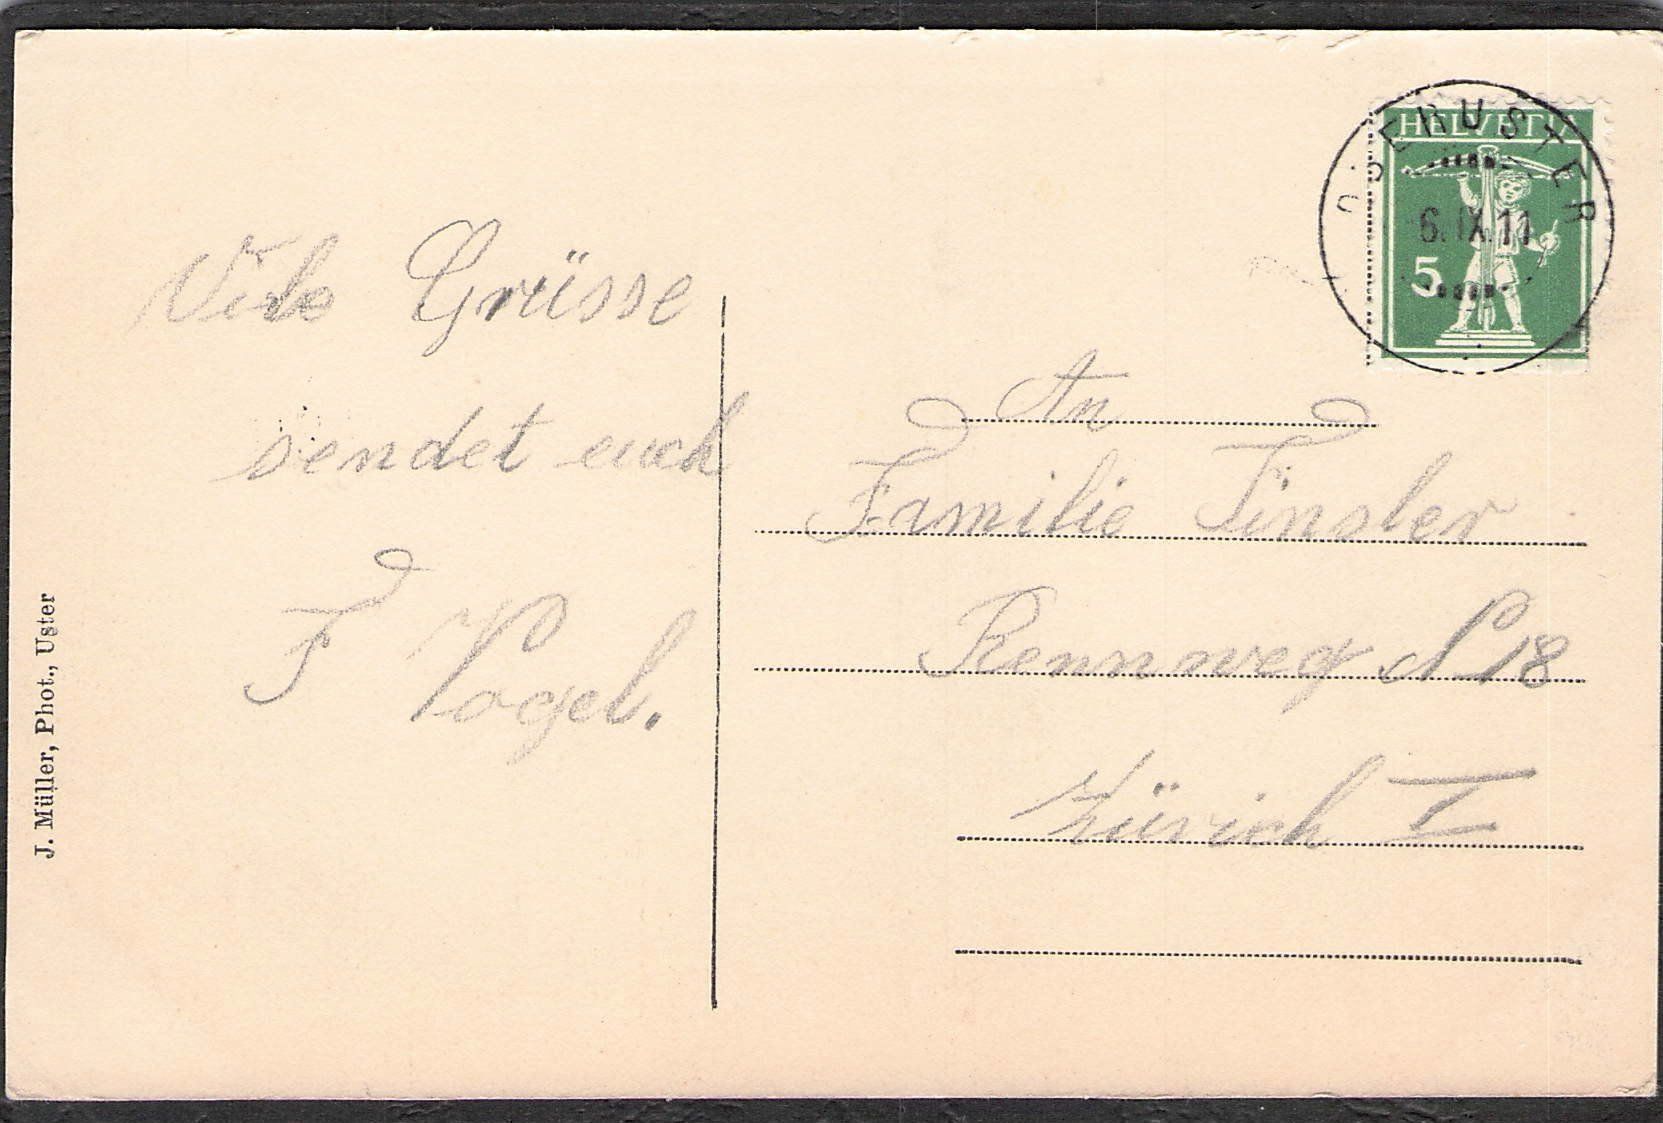 Viele Grüsse
sendet euch
F Vogel.
J. Müller, Phot., Uster
HELVETIA
OBERUSTER
6.IX.11
5
An
Familie Finsler
Rennweg N 18
Zürich I